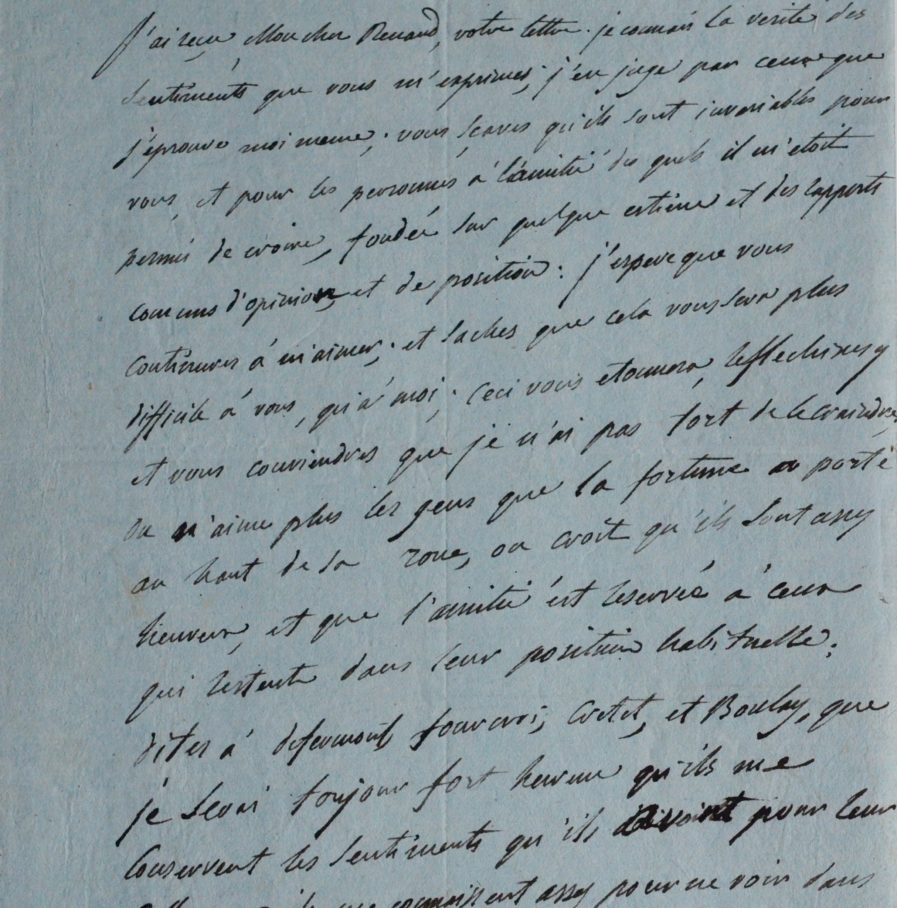 J'ai reçu Mon cher Renaud, votre lettre. je connais la verité des
sentiments que vous m'exprimes; j'en juge par ceux que
j'eprouve moi meme; vous sçaves qu'ils sont invariables pour
vous, et pour les personnes à l'amitié des quels il m'etoit
permis de croire, fondée sur quelque estime et des rapports
comuns d'opinion, et de position: j'espere que vous
continueres à m'aimer; et saches que cela vous sera plus
difficile à vous, qu'à moi; ceci vous etonnera, reflechisses y
et vous conviendres que je n'ai pas tort de le craindre,
on n'aime plus les gens que la fortune a porté
au haut de sa roue, on croit qu'ils sont assy
heureux, et que l'amitié est reservée à ceux
qui restent dans leur position habituelle;
dites à defermont fourcroi, Cretet, et Boulay, que
je serai toujour fort heureux qu'ils me
conservent les sentiments qu'ils avoint pour leur
me connoissent assy pour ne voir dans